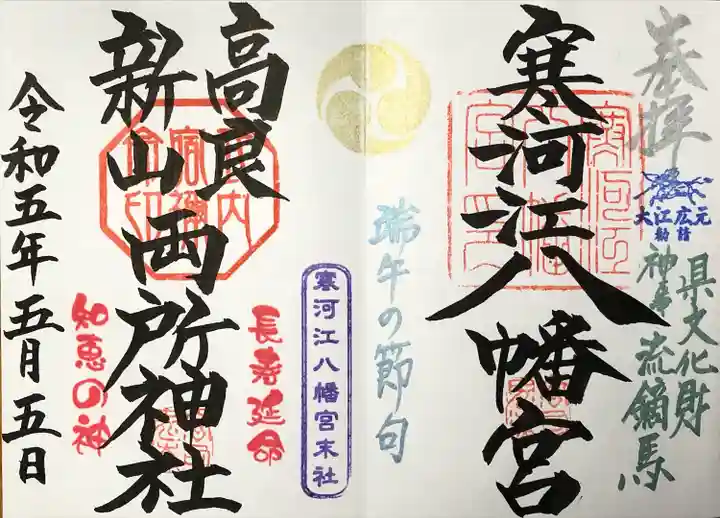 奉拝
大江広元
勧請
県文化財
神事流鏑馬
寒河江八幡宮
端午の節句
寒河江八幡宮末社
長寿延命
高良
新山両所神社
知恵の神
令和五年五月五日